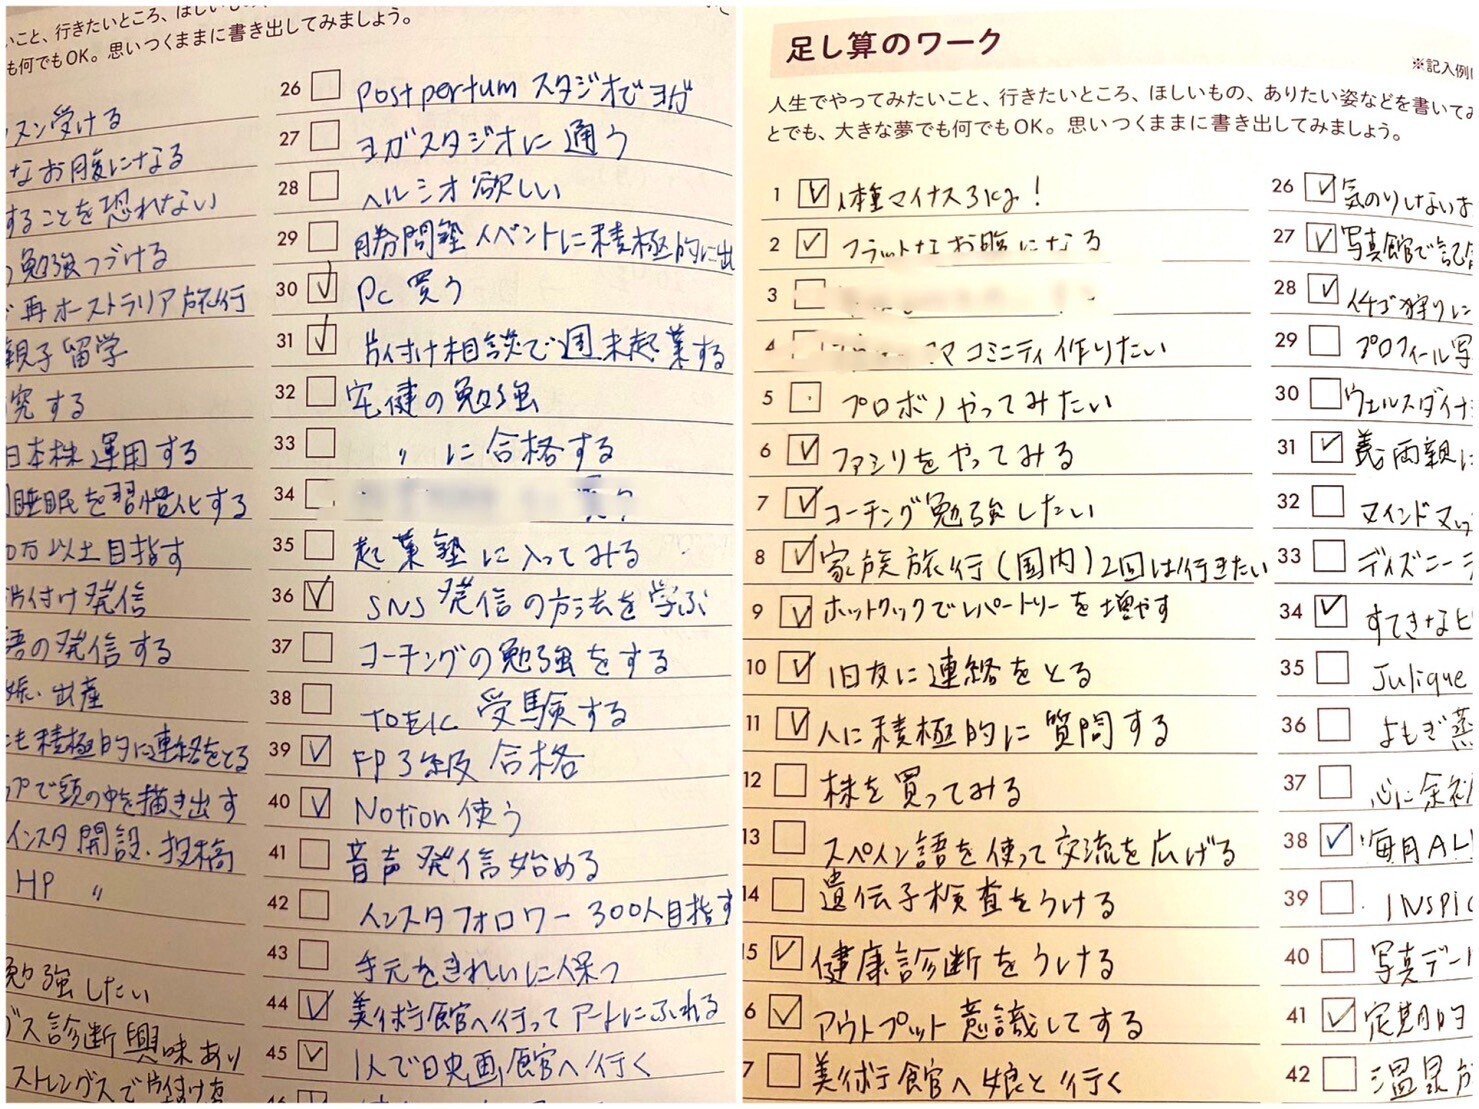 いこと、行きたいところ、ほしいもの、
も何でもOK。思いつくままに書き出してみましょう。
スン受ける
なお腹になる
することを恐れない
勉強つづける
再オーストラリア旅行
親子留学
究する
日本株運用する
睡眠を習慣化する
0万以上目指す
片付け発信
語の発信する
娠・出産
も積極的に連絡をとる
プで頭の中を描き出す
インスタ開設・投稿
HP 〃
勉強したい
グス診断興味あり
ストレングスで片付けを
26 Postpertum スタジオでヨガ
27 ヨガスタジオに通う
28 ヘルシオ欲しい
29 勝間塾イベントに積極的に出
30 PC買う
31 片付け相談で週末起業する
32 宅健の勉強
33 〃 に合格する
34 買う
35 起業塾に入ってみる
36 SNS発信の方法を学ぶ
37 コーチングの勉強をする
38 TOEIC 受験する
39 FP3級合格
40 Notion使う
41 音声発信始める
42 インスタフォロワー300人目指す
43 手元をきれいに保つ
44 美術館へ行ってアートにふれる
45 1人で映画館へ行く
46
足し算のワーク
※記入例
人生でやってみたいこと、行きたいところ、ほしいもの、ありたい姿などを書いてみ
とでも、大きな夢でも何でもOK。思いつくままに書き出してみましょう。
1 体重マイナス3kg！
2 フラットなお腹になる
3
4 マコミニティ作りたい
5 プロボノやってみたい
6 ファシリをやってみる
7 コーチング勉強したい
8 家族旅行(国内)2回は行きたい
9 ホットクックでレパートリーを増やす
10 旧友に連絡をとる
11 人に積極的に質問する
12 株を買ってみる
13 スペイン語を使って交流を広げる
14 遺伝子検査をうける
15 健康診断をうける
6 アウトプット意識してする
7 美術館へ娘と行く
26 気のりしないお
27 写真館で記念
28 イチゴ狩りに
29 プロフィール写
30 ウェルスダイナ
31 義両親に
32 マインドマッ
33 ディズニー
34 すてきなヒ
35 Julique
36 よもぎ蒸
37 心に余裕
38 毎月AL
39 INSPIC
40 写真デー
41 定期的
42 温泉